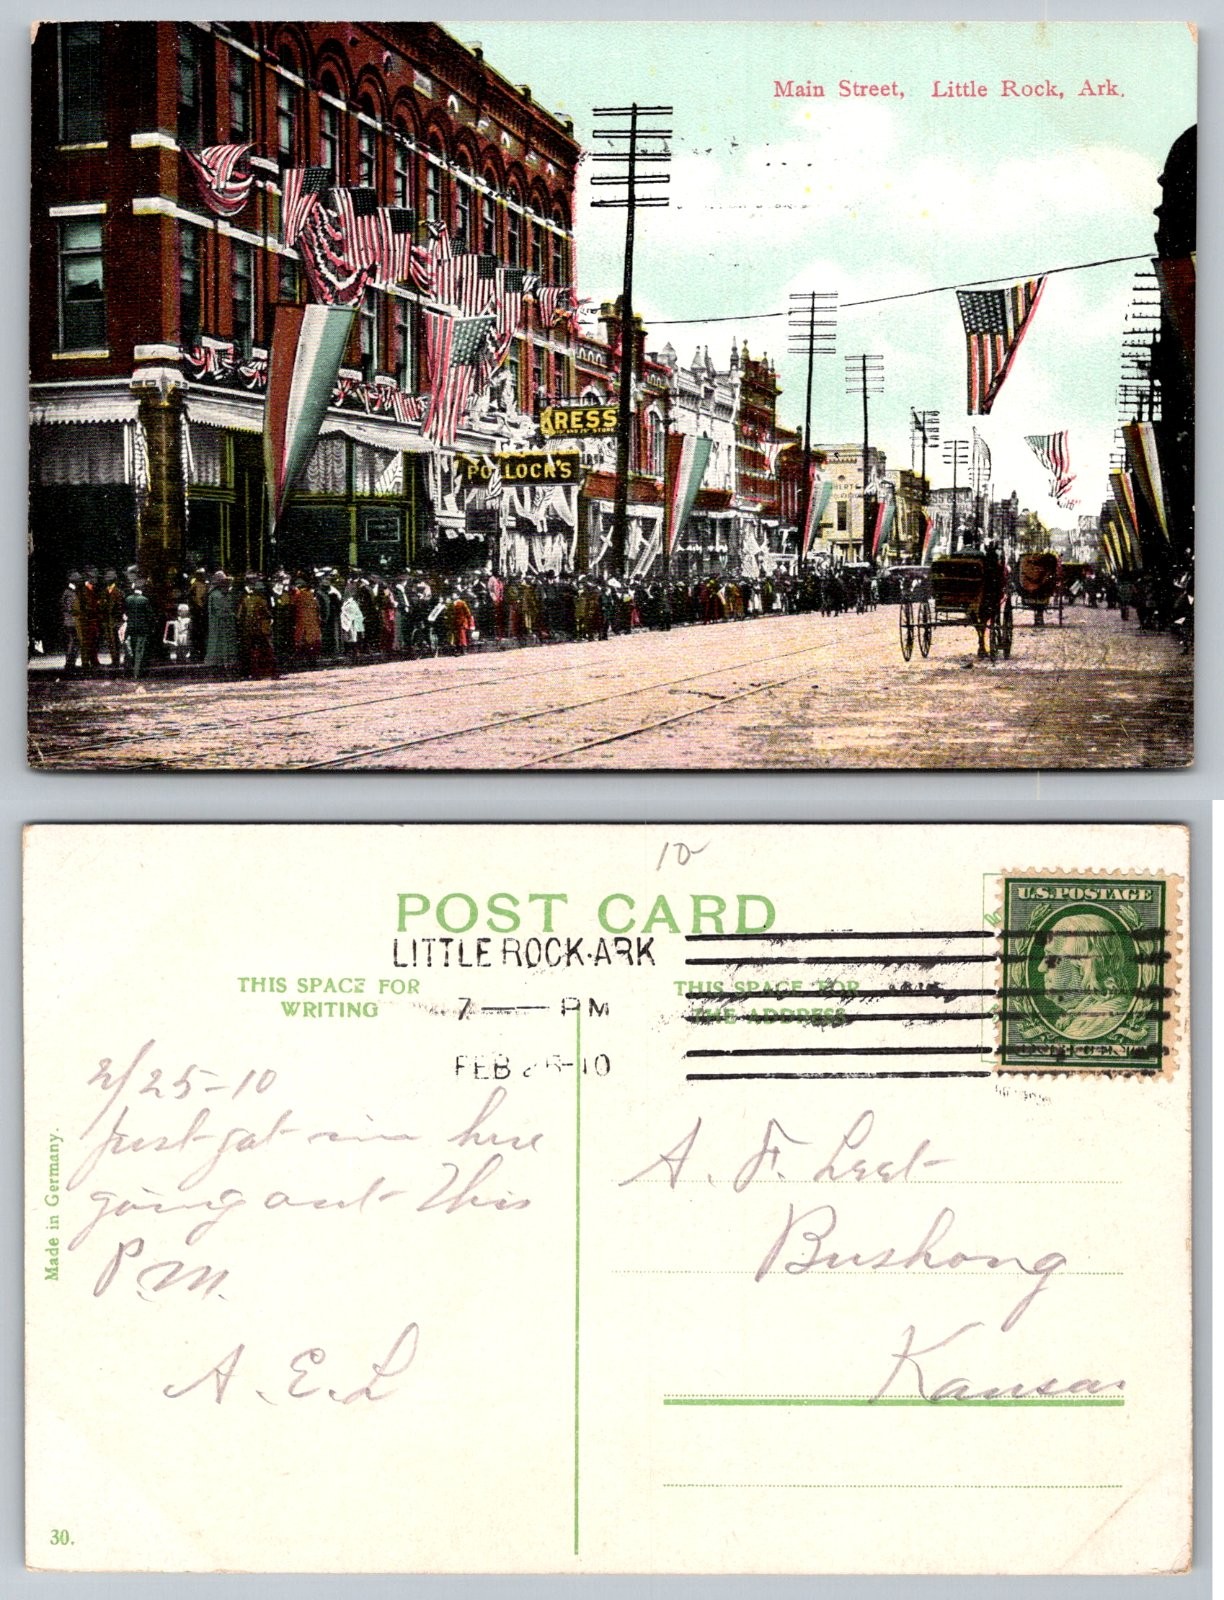 Main Street, Little Rock, Ark.
KRESS
POLLOCK'S
10
POST CARD
LITTLE ROCK·ARK
THIS SPACE FOR
WRITING
THIS SPACE FOR
THE ADDRESS
7 PM
FEB 25-10
U.S. POSTAGE
ONE CENT
2/25-10
Just got in here
going out This
P.M.
A. E. L
A. F. Leet
Bushong
Kansas
Made in Germany.
30.